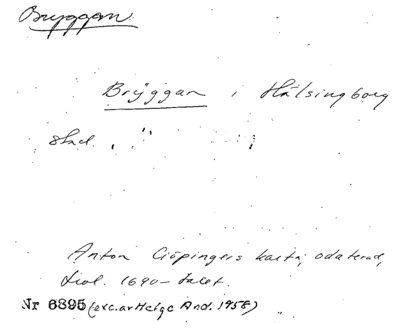 Bryggan
Brÿggan i Hälsingborg
stad. , " ;
Anton Cöpingers karta, odaterad,
trol. 1690-talet.
Nr 6895 (exc. av Helge And. 1958)